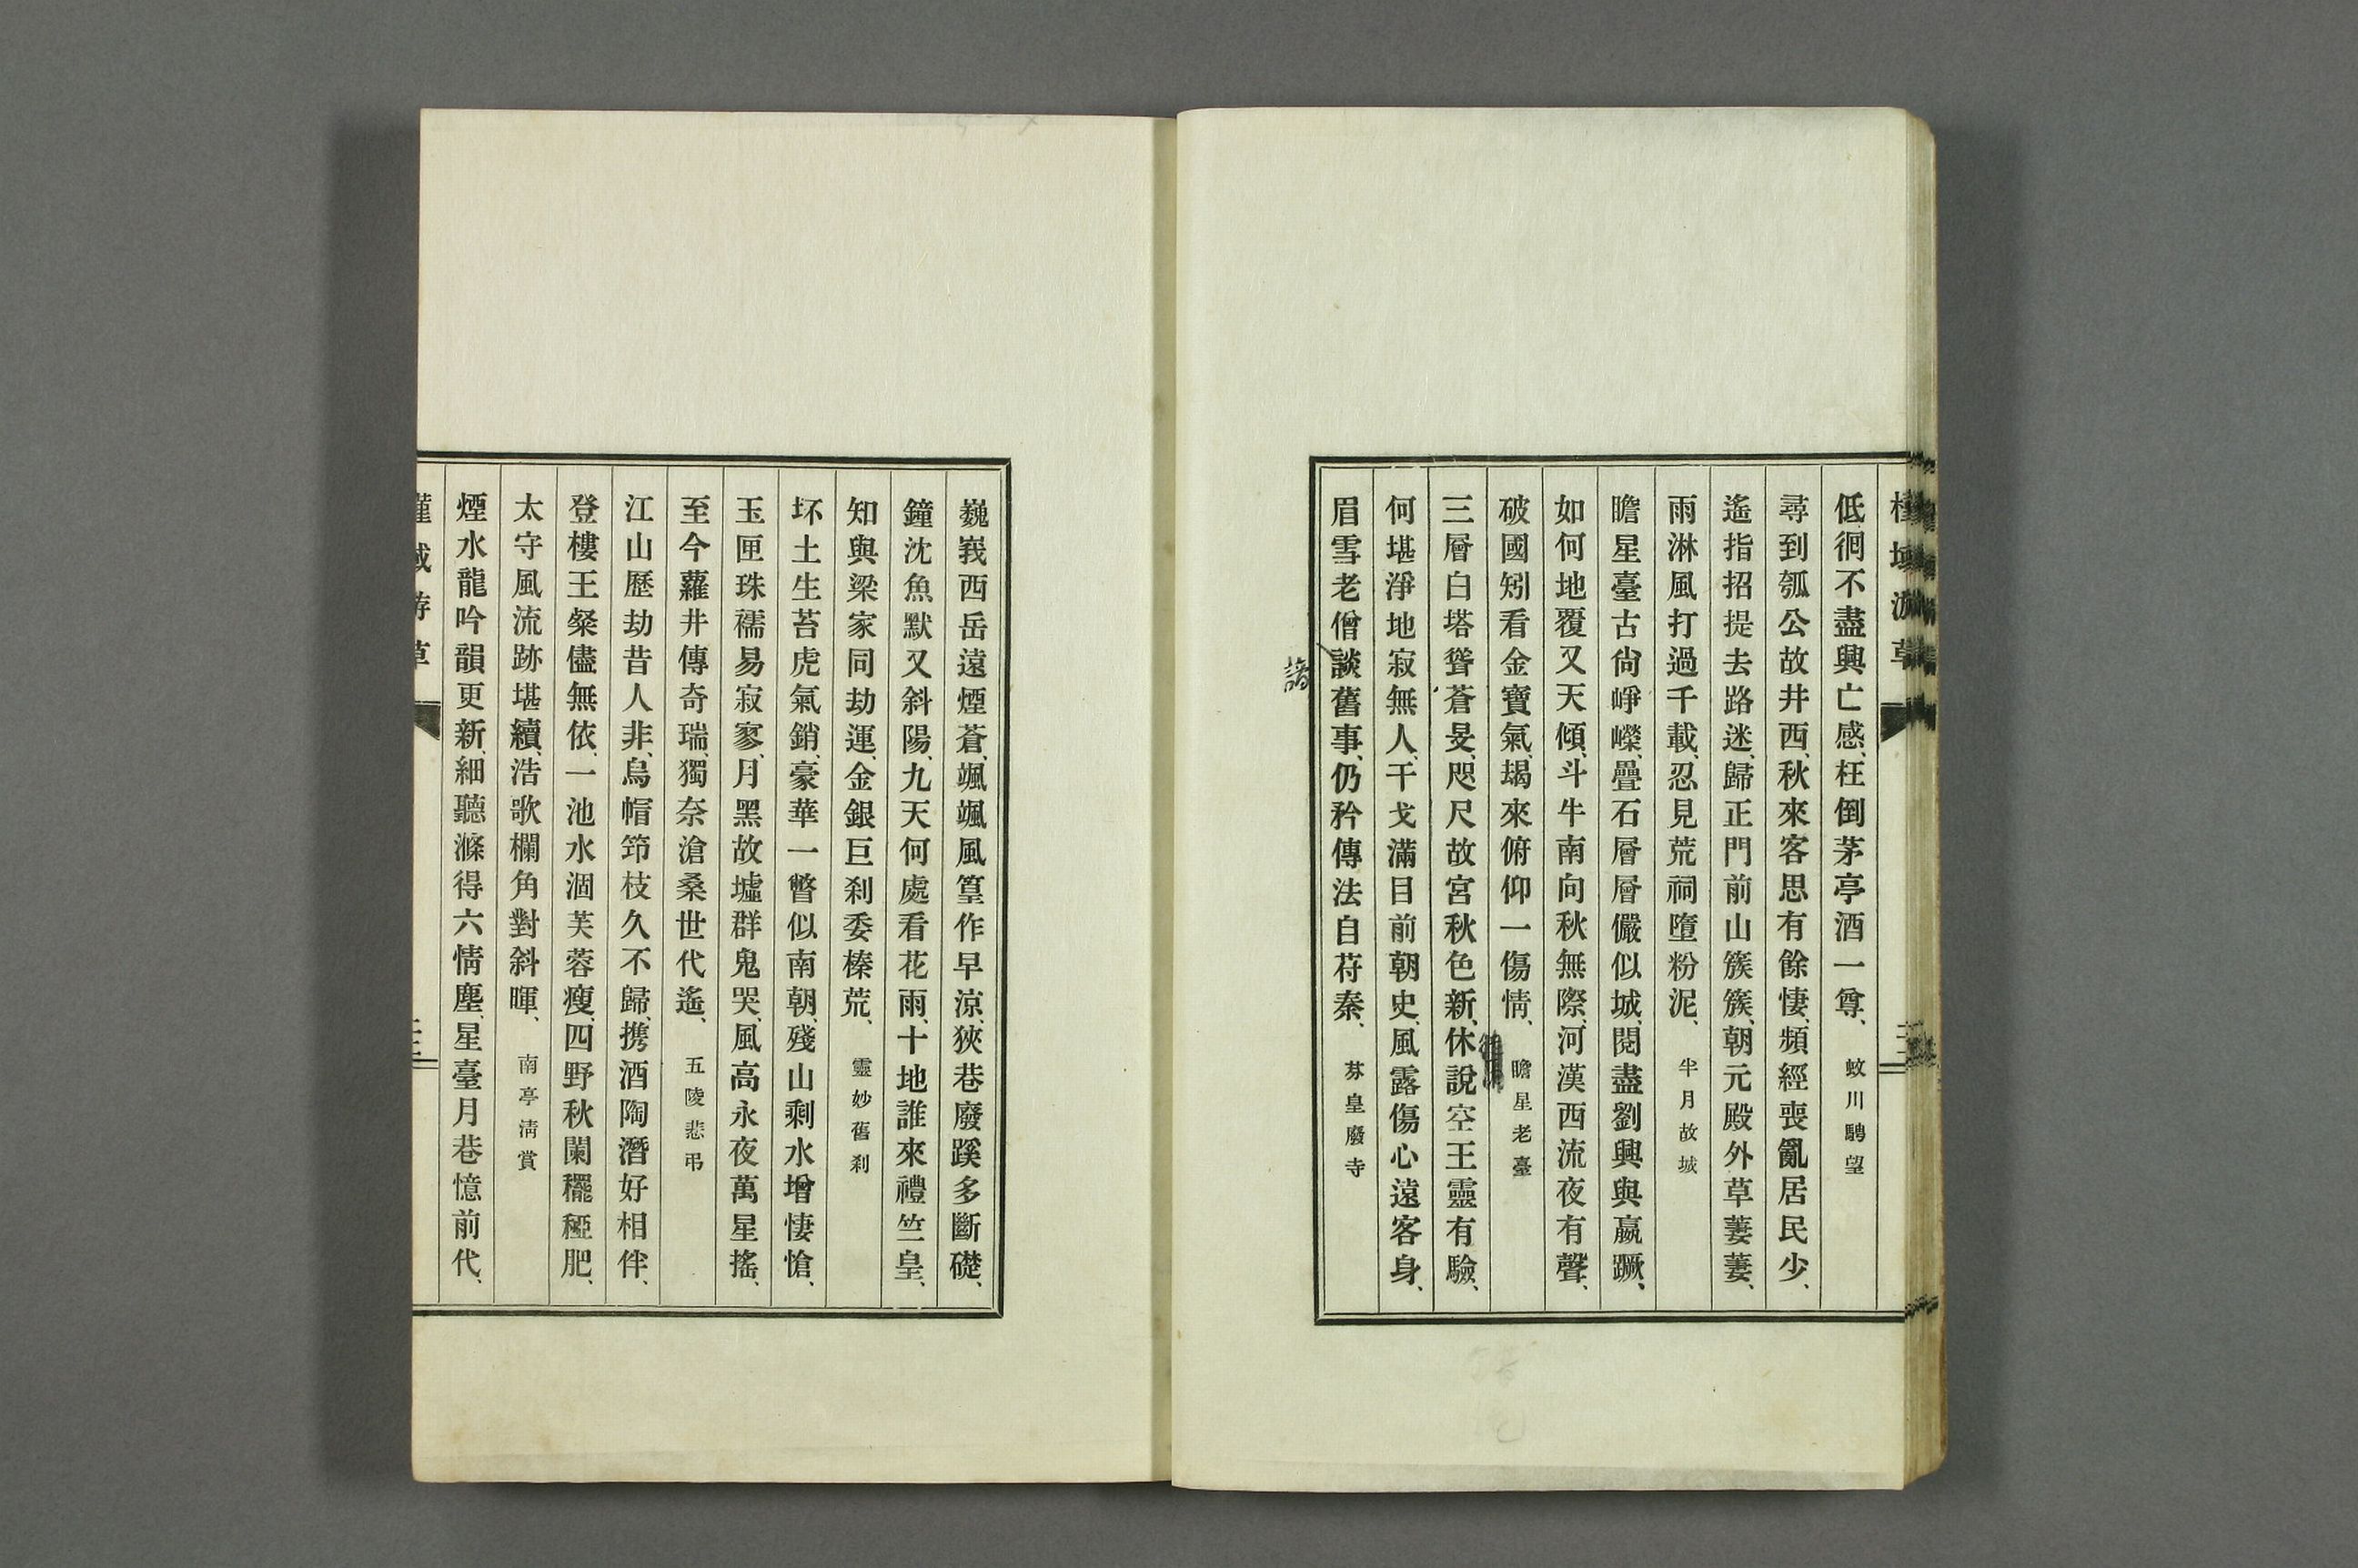 槿域游草
低徊不盡興亡感、枉倒茅亭酒一尊、 蚊川騁望
尋到瓠公故井西、秋來客思有餘悽、頻經喪亂居民少、
遙指招提去路迷、歸正門前山簇簇、朝元殿外草萋萋、
雨淋風打過千載、忍見荒祠墮粉泥、 半月故城
瞻星臺古尙崢嶸、疊石層層儼似城、閱盡劉興與嬴蹶、
如何地覆又天傾、斗牛南向秋無際、河漢西流夜有聲、
破國矧看金寶氣、朅來俯仰一傷情、 瞻星老臺
三層白塔聳蒼旻、咫尺故宮秋色新、休說空王靈有驗、
何堪淨地寂無人、干戈滿目前朝史、風露傷心遠客身、
眉雪老僧談舊事、仍矜傳法自苻秦、 芬皇廢寺
巍峩西岳遠煙蒼、颯颯風篁作早涼、狹巷廢蹊多斷礎、
鐘沈魚默又斜陽、九天何處看花雨、十地誰來禮竺皇、
知與梁家同劫運、金銀巨刹委榛荒、 靈妙舊刹
坏土生苔虎氣銷、豪華一瞥似南朝、殘山剩水增悽愴、
玉匣珠襦易寂寥、月黑故墟群鬼哭、風高永夜萬星搖、
至今蘿井傳奇瑞、獨奈滄桑世代遙、 五陵悲弔
江山歷劫昔人非、烏帽筇枝久不歸、携酒陶潛好相伴、
登樓王粲儘無依、一池水涸芙蓉瘦、四野秋闌䆉稏肥、
太守風流跡堪續、浩歌欄角對斜暉、 南亭淸賞
煙水龍吟韻更新、細聽滌得六情塵、星臺月巷憶前代、
槿域游草